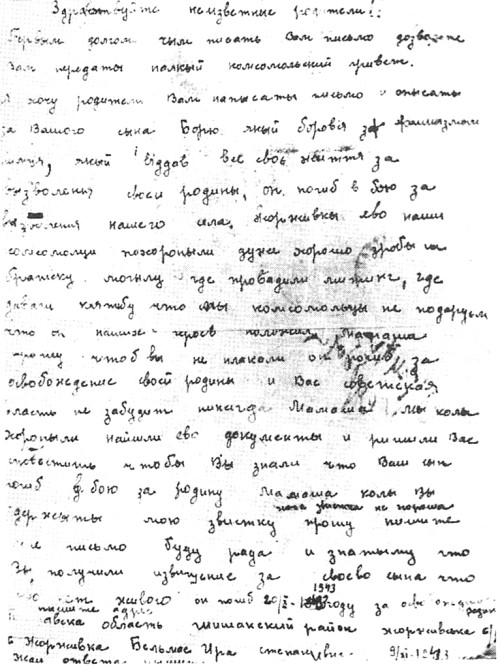 Здравствуйте неизвестные родители!!
Первым долгом чым писать Вам письмо дозвольте
Вам передаты палкый комсомольский привет.
Я хочу родители Вам напысаты письмо и описаты
за Вашого сына Борю який боровся за фашизмом
який віддав все своє життя за
вызволення своєи родины, он погиб в бою за
вызволення нашего села. Жорнивкы ево наши
комсомольци похоронылы дуже хорошо зробылы
братску могылу где проводили митинг, где
давали клятьбу что мы комсомольцы не подаруем
что он наших кров положил, Мамаша
прошу чтоб вы не плакали он погиб за
освобождение своей родины и Вас советская
власть не забудит никогда Мамаша мы колы
хоронылы найшли ево документы и ришили Вас
известить чтобы Вы знали что Ваш сын
погиб в бою за родину Мамаша колы Вы
хоть звистка не хороша
держыте мою звистку прошу пишите
письмо буду рада и знатыму что
Вы получили извищение за своево сына что
нет живого он погиб 20/IX-1943 году за
пишите адрес
область шишакский район жорнивска с/
с Жорнивка Бельмас Ира степановне.
Жду ответа 9/XI-1943